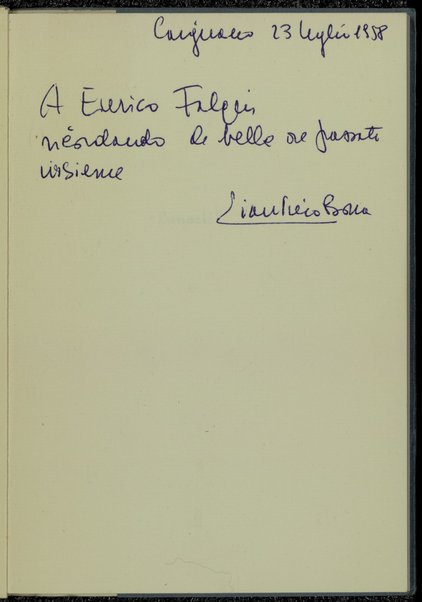 Carignano 23 luglio 1958
A Enrico Falqui
ricordando le belle ore passate
insieme
Gian Piero Bona